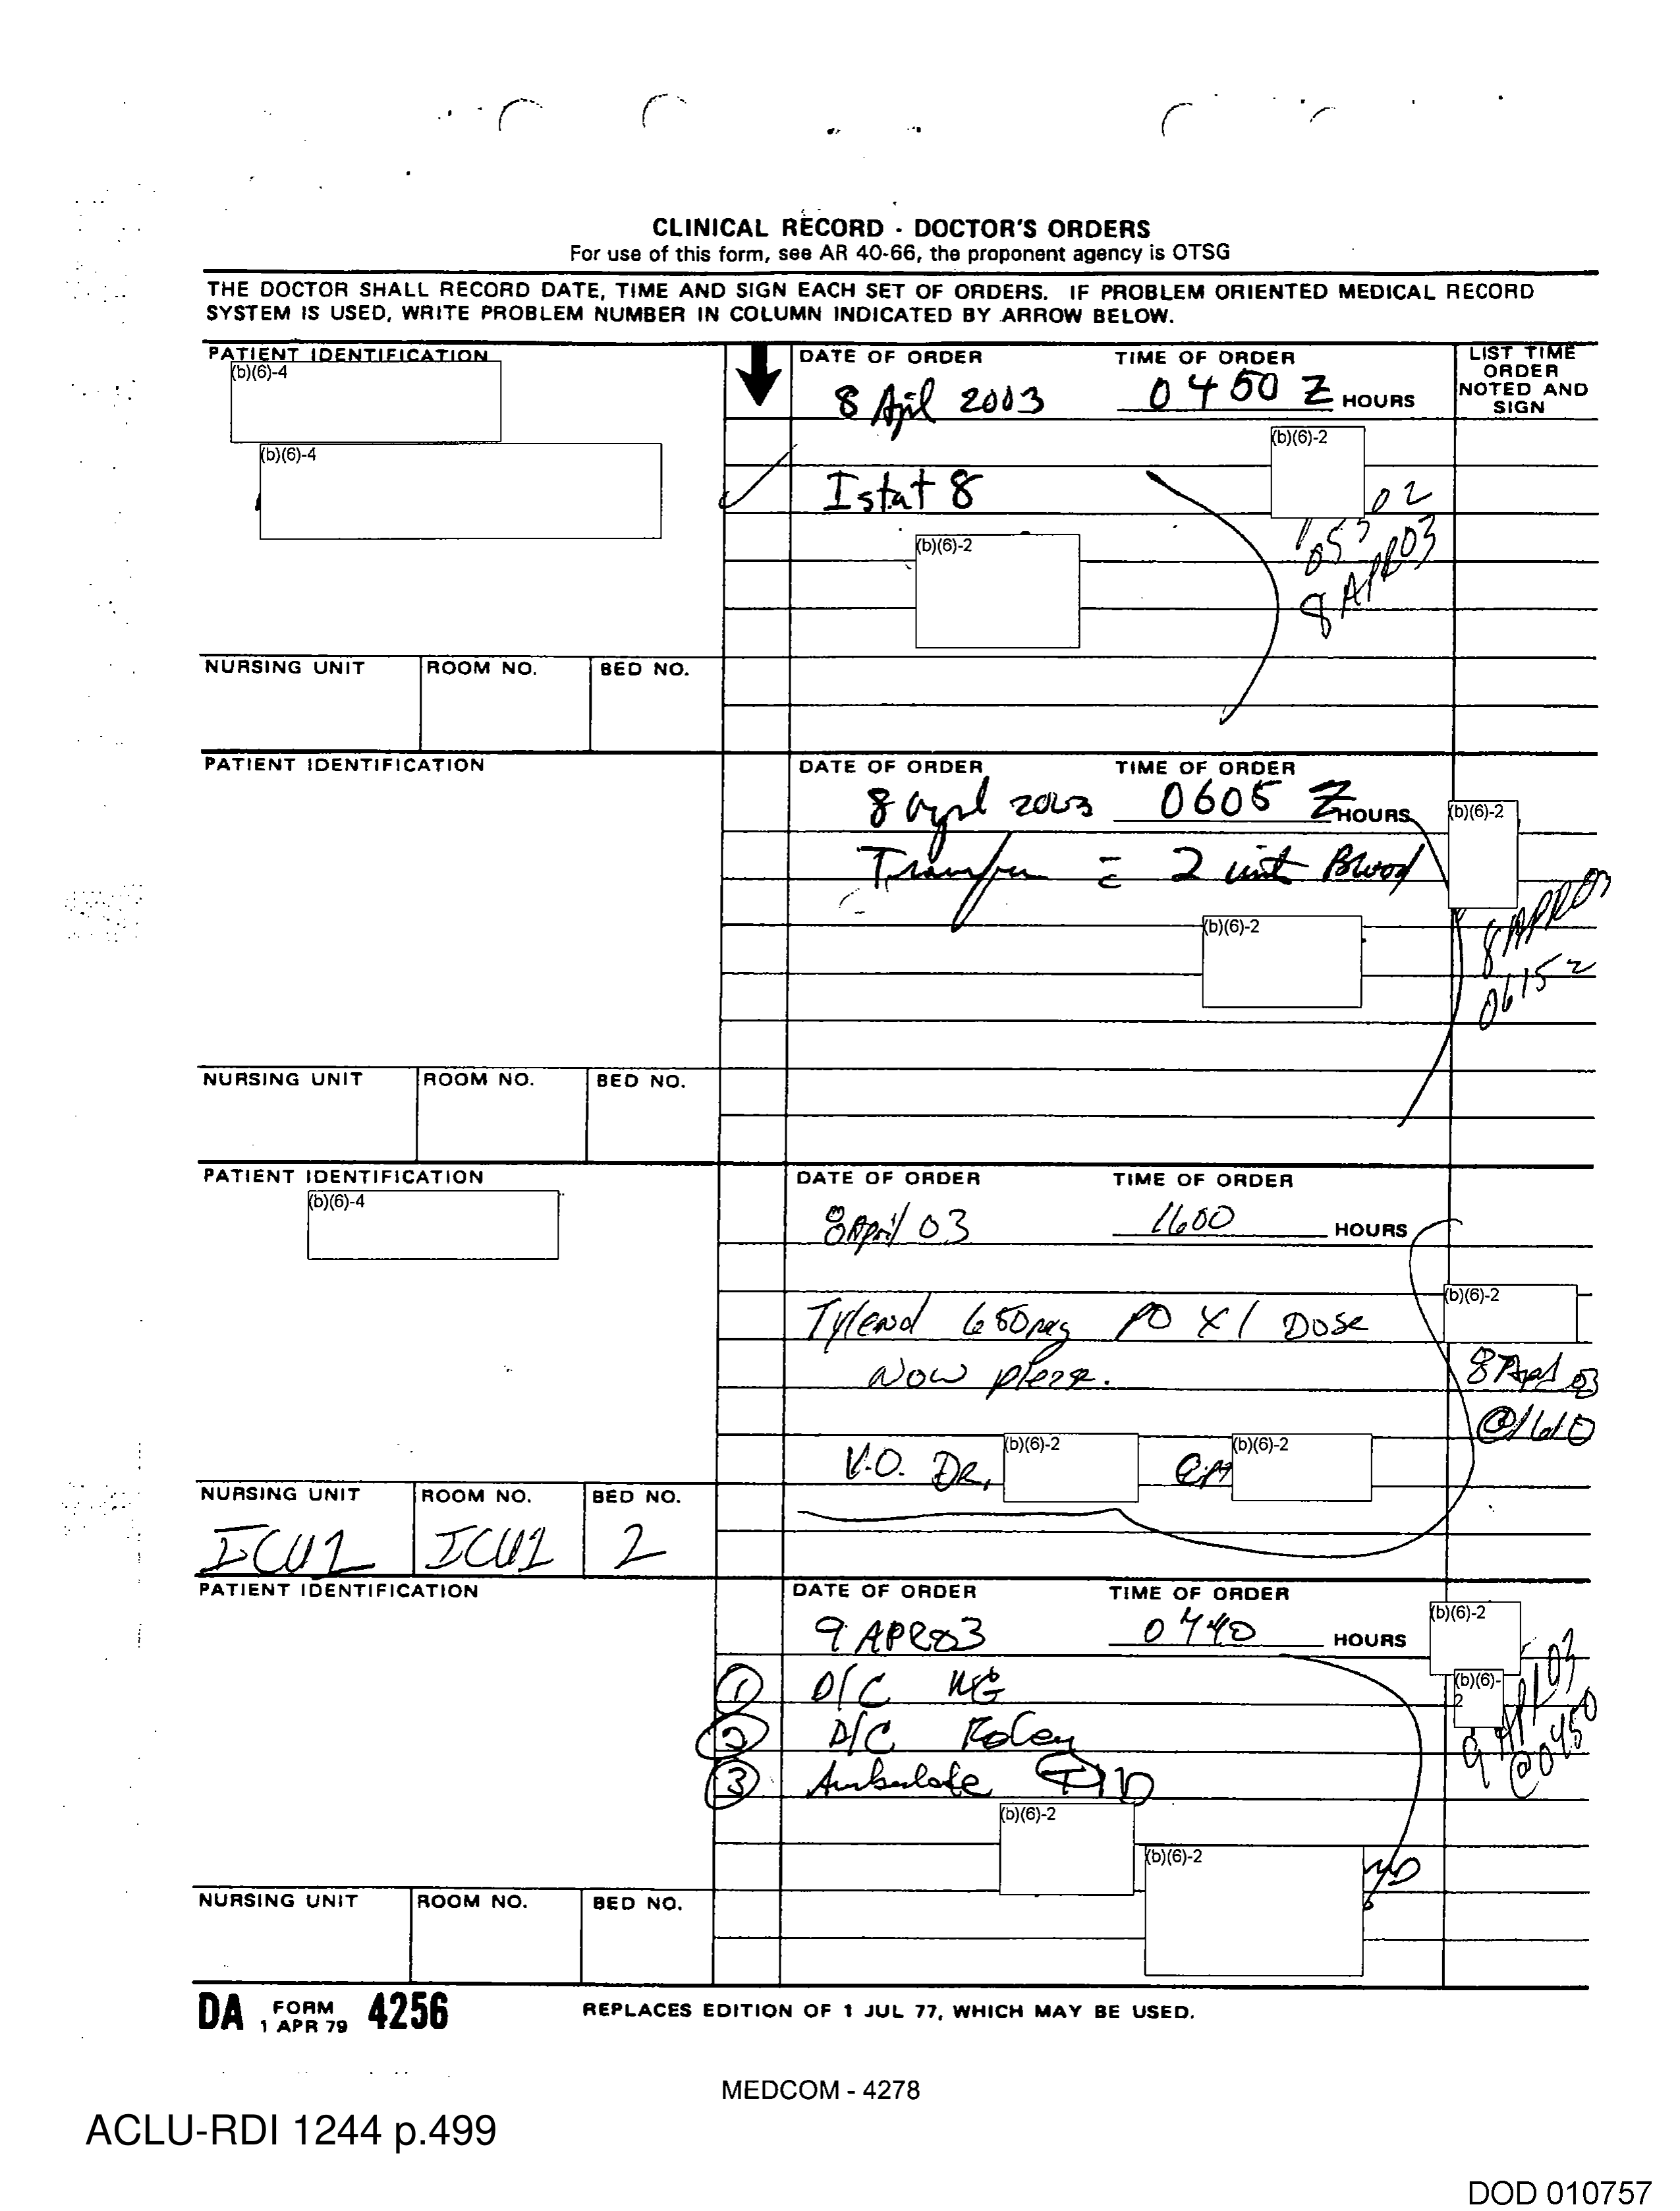 CLINICAL RECORD - DOCTOR'S ORDERS
For use of this form, see AR 40-66, the proponent agency is OTSG
THE DOCTOR SHALL RECORD DATE, TIME AND SIGN EACH SET OF ORDERS. IF PROBLEM ORIENTED MEDICAL RECORD
SYSTEM IS USED, WRITE PROBLEM NUMBER IN COLUMN INDICATED BY ARROW BELOW.
PATIENT IDENTIFICATION DATE OF ORDER TIME OF ORDER LIST TIME ORDER NOTED AND SIGN
(b)(6)-4
8 April 2003 0450 Z HOURS
(b)(6)-4 (b)(6)-2
Istat 8
(b)(6)-2
8 APR 03
NURSING UNIT ROOM NO. BED NO.
PATIENT IDENTIFICATION DATE OF ORDER TIME OF ORDER
8 April 2003 0605 Z HOURS (b)(6)-2
2 unit Blood
(b)(6)-2 8 APR 03
0615 Z
NURSING UNIT ROOM NO. BED NO.
PATIENT IDENTIFICATION DATE OF ORDER TIME OF ORDER
(b)(6)-4 8 April 03 1600 HOURS
(b)(6)-2
Tylenol 650mg PO X 1 Dose
Now please. 8 April 03
@1610
V.O. DR. (b)(6)-2 (b)(6)-2
NURSING UNIT ROOM NO. BED NO.
ICU1 ICU1 2
PATIENT IDENTIFICATION DATE OF ORDER TIME OF ORDER
9 APR 03 0440 HOURS (b)(6)-2
① D/C NG (b)(6)-2
② D/C Foley 9 APR 03
③ Ambulate TID @0450
(b)(6)-2
(b)(6)-2 MD
NURSING UNIT ROOM NO. BED NO.
DA FORM 4256
1 APR 79
REPLACES EDITION OF 1 JUL 77, WHICH MAY BE USED.
MEDCOM - 4278
ACLU-RDI 1244 p.499
DOD 010757